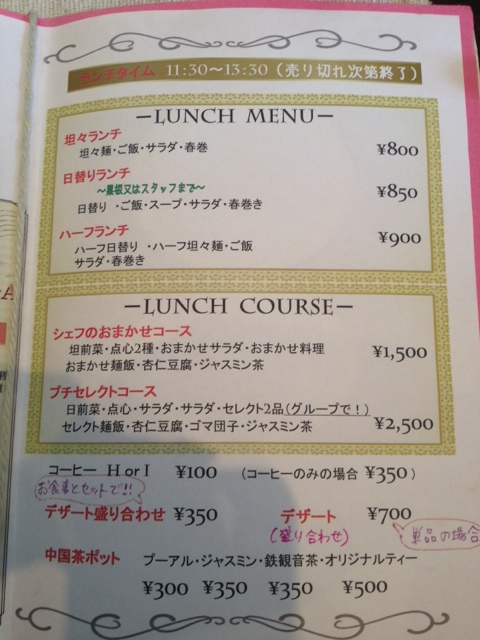 ランチタイム 11:30~13:30（売り切れ次第終了）
LUNCH MENU
坦々ランチ
坦々麺・ご飯・サラダ・春巻 ¥800
日替りランチ
～黒板又はスタッフまで～
日替り ・ご飯・スープ・サラダ・春巻き ¥850
ハーフランチ
ハーフ日替り ・ハーフ坦々麺・ご飯 ¥900
サラダ・春巻き
LUNCH COURSE
シェフのおまかせコース
坦前菜・点心2種・おまかせサラダ・おまかせ料理
おまかせ麺飯・杏仁豆腐・ジャスミン茶 ¥1,500
プチセレクトコース
日前菜・点心・サラダ・サラダ・セレクト2品(グループで！)
セレクト麺飯・杏仁豆腐・ゴマ団子・ジャスミン茶 ¥2,500
コーヒー H or I ¥100 (コーヒーのみの場合 ¥350)
お食事とセットで!!
デザート盛り合わせ ¥350 デザート ¥700
(盛り合わせ) 単品の場合
中国茶ポット プーアル・ジャスミン・鉄観音茶・オリジナルティー
¥300 ¥350 ¥350 ¥500